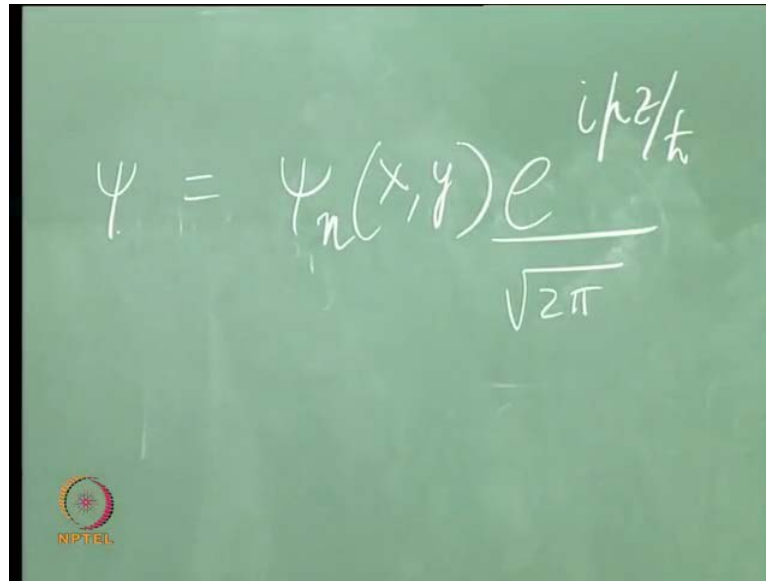 ψ = ψₙ(x,y) e^{ipz/ħ} / √2π
NPTEL